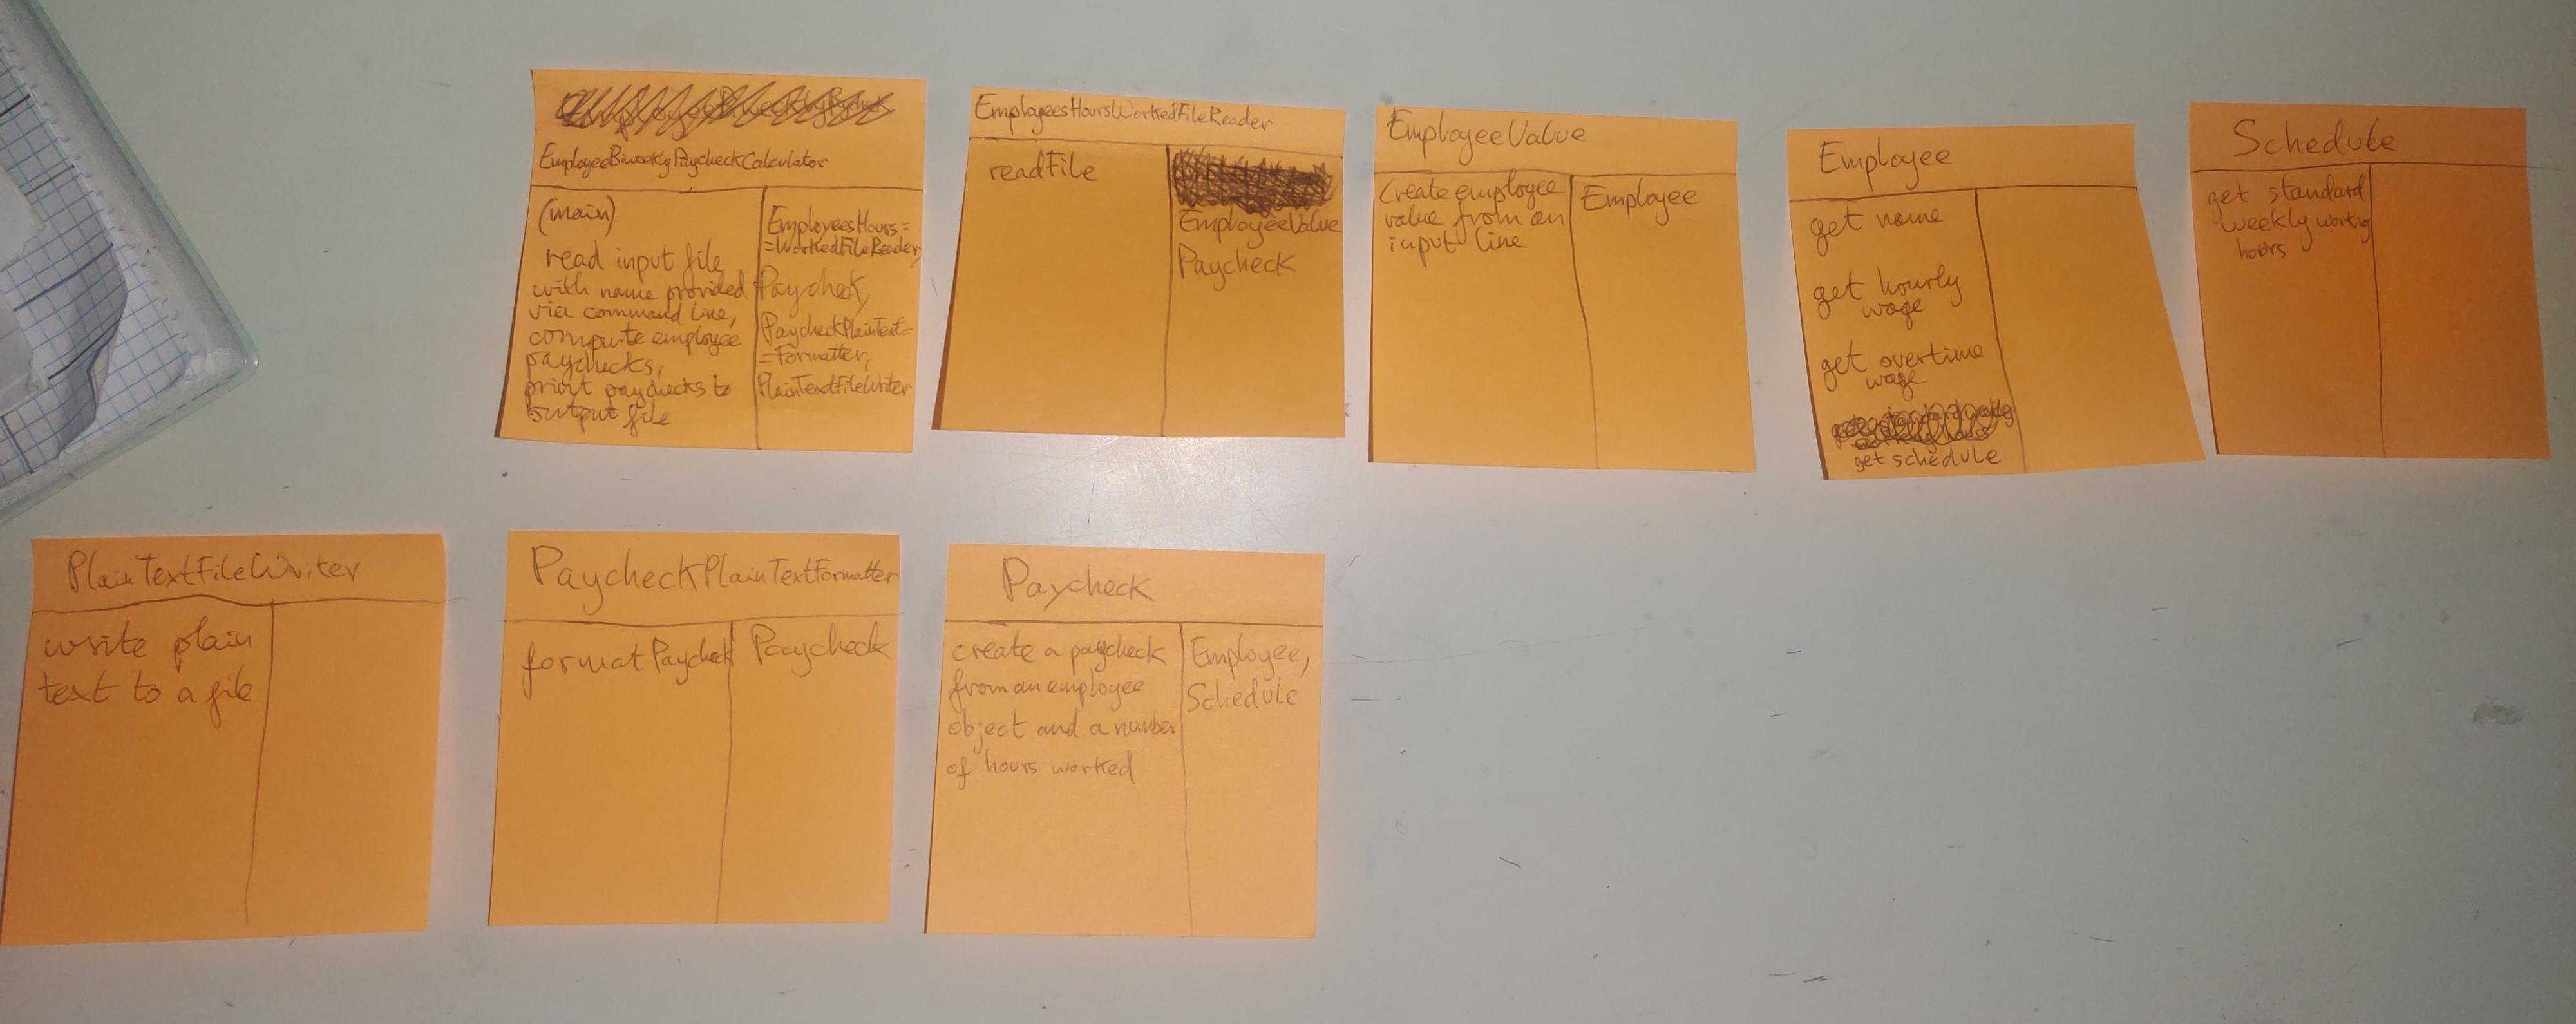 EmployeeBiweeklyPaycheckCalculator
(main)
read input file
with name provided
via command line,
compute employee
paychecks,
print paychecks to
output file
EmployeesHours=
=WorkedFileReader,
Paycheck,
PaycheckPlainText=
=Formatter,
PlainTextFileWriter
EmployeesHoursWorkedFileReader
readFile
EmployeeValue
Paycheck
EmployeeValue
Create employee
value from an
input line
Employee
Employee
get name
get hourly
wage
get overtime
wage
get schedule
Schedule
get standard
weekly working
hours
PlainTextFileWriter
write plain
text to a file
PaycheckPlainTextFormatter
formatPaycheck
Paycheck
Paycheck
create a paycheck
from an employee
object and a number
of hours worked
Employee,
Schedule